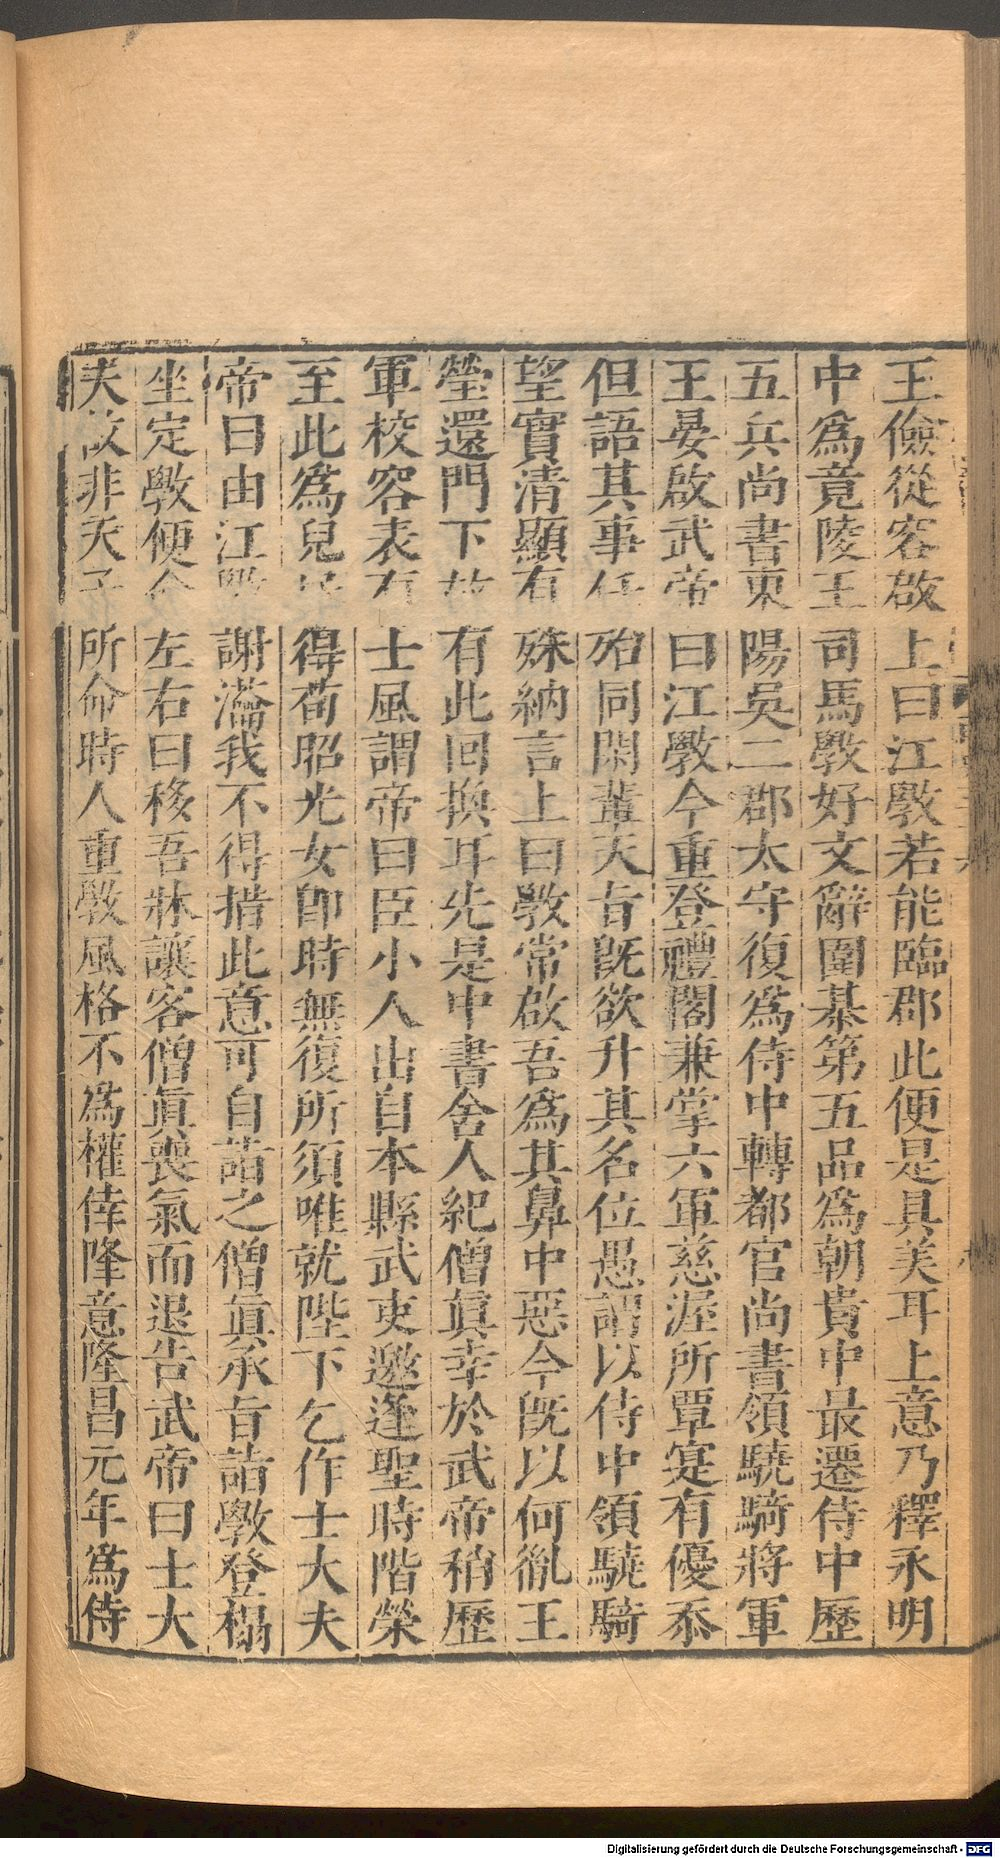 王儉從容啟上曰江斆若能臨郡此便是具美耳上意乃釋永明
中爲竟陵王司馬斆好文辭圍棊第五品爲朝貴中最遷侍中歷
五兵尚書東陽吳二郡太守復爲侍中轉都官尚書領驍騎將軍
王晏啟武帝曰江斆今重登禮閣兼掌六軍慈渥所覃寔有優忝
但語其事任殆同閑輩天旨旣欲升其名位愚謂以侍中領驍騎
望實清顯有殊納言上曰斆常啟吾爲其鼻中惡今旣以何胤王
瑩還門下故有此回換耳先是中書舍人紀僧眞幸於武帝稍歷
軍校容表有士風謂帝曰臣小人出自本縣武吏邀逢聖時階榮
至此爲兒昏得荀昭光女卽時無復所須唯就陛下乞作士大夫
帝曰由江斆謝瀹我不得措此意可自詣之僧眞承旨詣斆登榻
坐定斆便命左右曰移吾牀讓客僧眞喪氣而退告武帝曰士大
夫故非天子所命時人重斆風格不爲權倖隆意隆昌元年爲侍
Digitalisierung gefördert durch die Deutsche Forschungsgemeinschaft - DFG